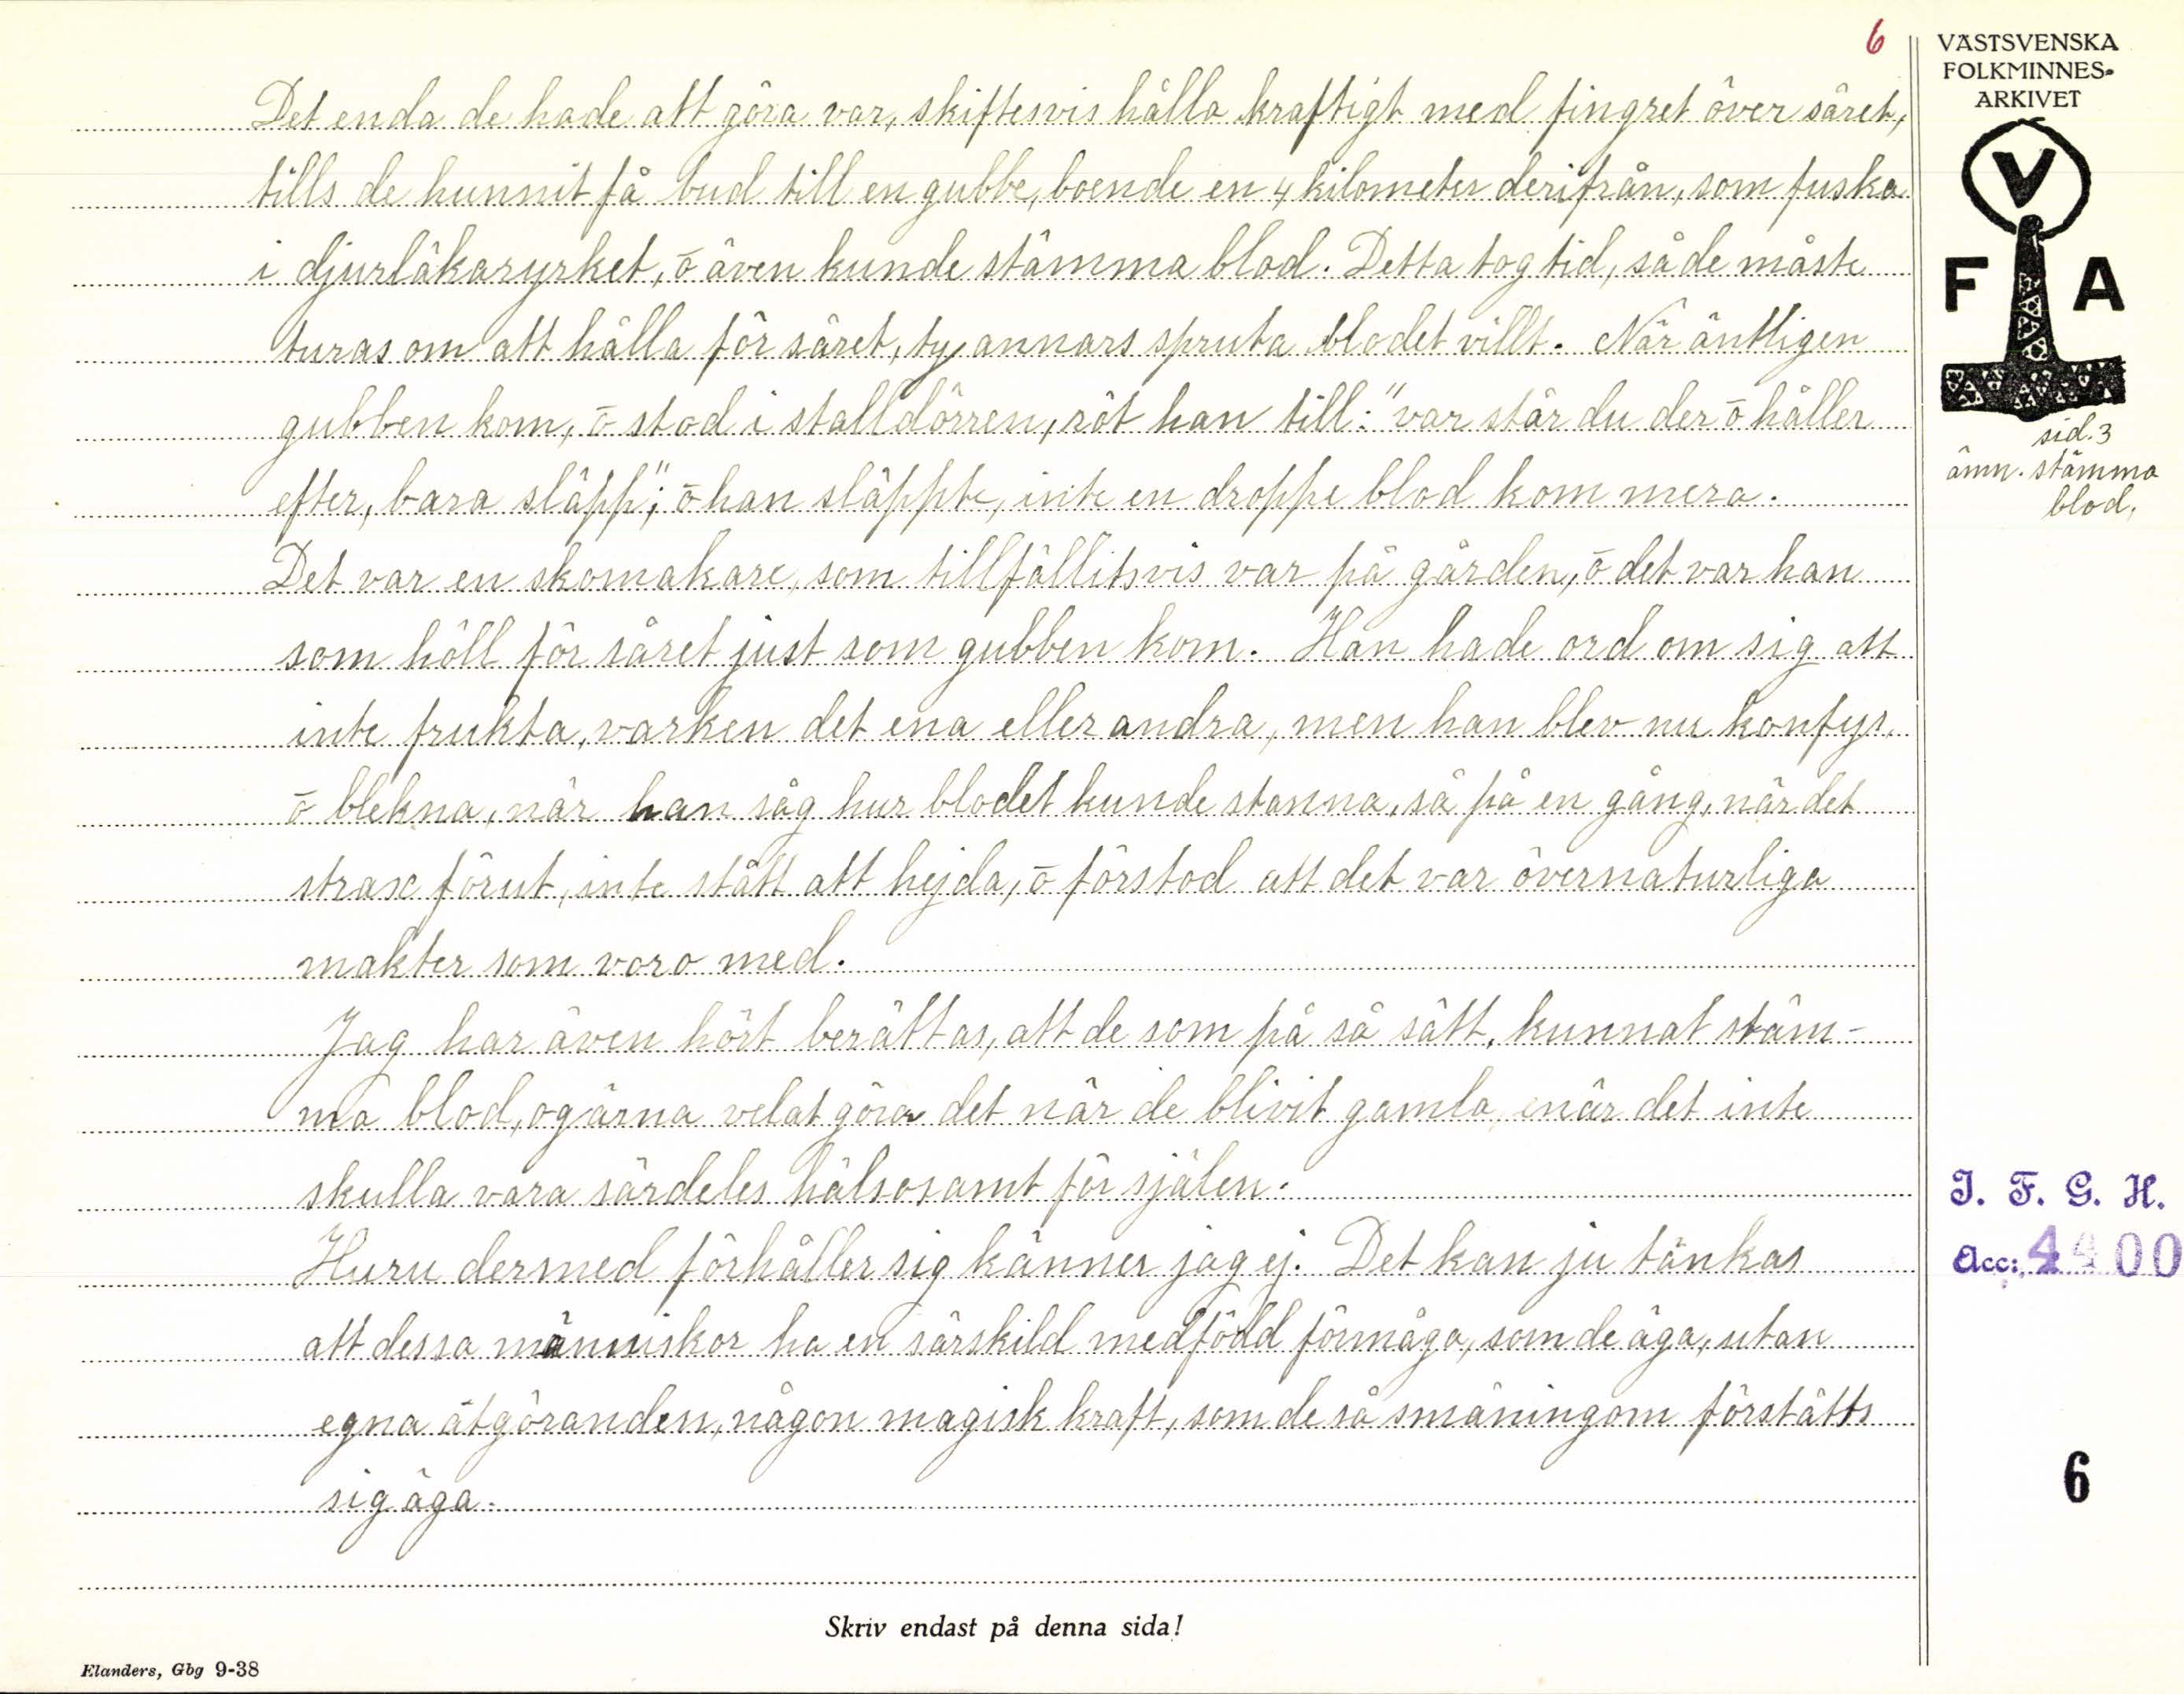 6
Det enda de hade att göra var, skiftesvis hålla kraftigt med fingret över såret,
tills de hunnit få bud till en gubbe, boende en 4 kilometer derifrån, som fuska
i djurläkaryrket, ō även kunde stämma blod. Detta tog tid, så de måste
turas om att hålla för såret, ty annars spruta blodet villt. När äntligen
gubben kom, ō stod i stalldörren, röt han till: "var står du der ō håller
efter, bara släpp"; ō han släppte, inte en droppe blod kom mera.
Det var en skomakare, som tillfällitsvis var på gården, ō det var han
som höll för såret just som gubben kom. Han hade ord om sig att
inte frukta, varken det ena eller andra, men han blev nu konfys,
ō blekna, när han såg hur blodet kunde stanna, så på en gång, när det
strax förut, inte stått att hejda, ō förstod att det var övernaturliga
makter som voro med.
Jag har även hört berättas, att de som på så sätt, kunnat stäm-
ma blod, ogärna velat göra det när de blivit gamla, enär det inte
skulla vara särdeles hälsosamt för själen.
Huru dermed förhåller sig känner jag ej. Det kan ju tänkas
att dessa människor ha en särskild medfödd förmåga, som de äga, utan
egna åtgöranden, någon magisk kraft, som de så småningom förstått
sig äga.
Skriv endast på denna sida!
Elanders, Gbg 9-38
VÄSTSVENSKA
FOLKMINNES-
ARKIVET
V
F A
sid. 3
ämn. stämma
blod.
I. F. G. H.
Acc: 4400
6